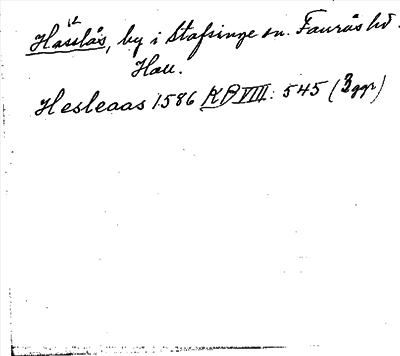 Hasslås, by i Stafsinge sn. Faurås hd.
Hall.
Hesleaas 1586 KB VIII: 545 (2 ggr)